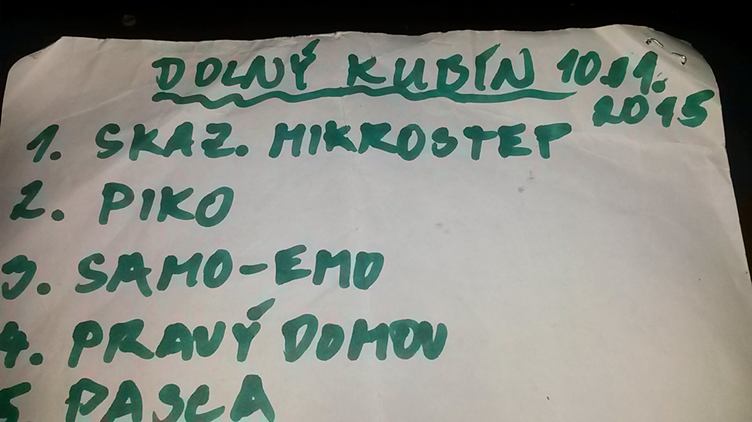 DOLNÝ KUBÍN 10.11.
2015
1. SKAZ. MIKROSTEP
2. PIKO
3. SAMO-EMO
4. PRAVÝ DOMOV
5. PASCA